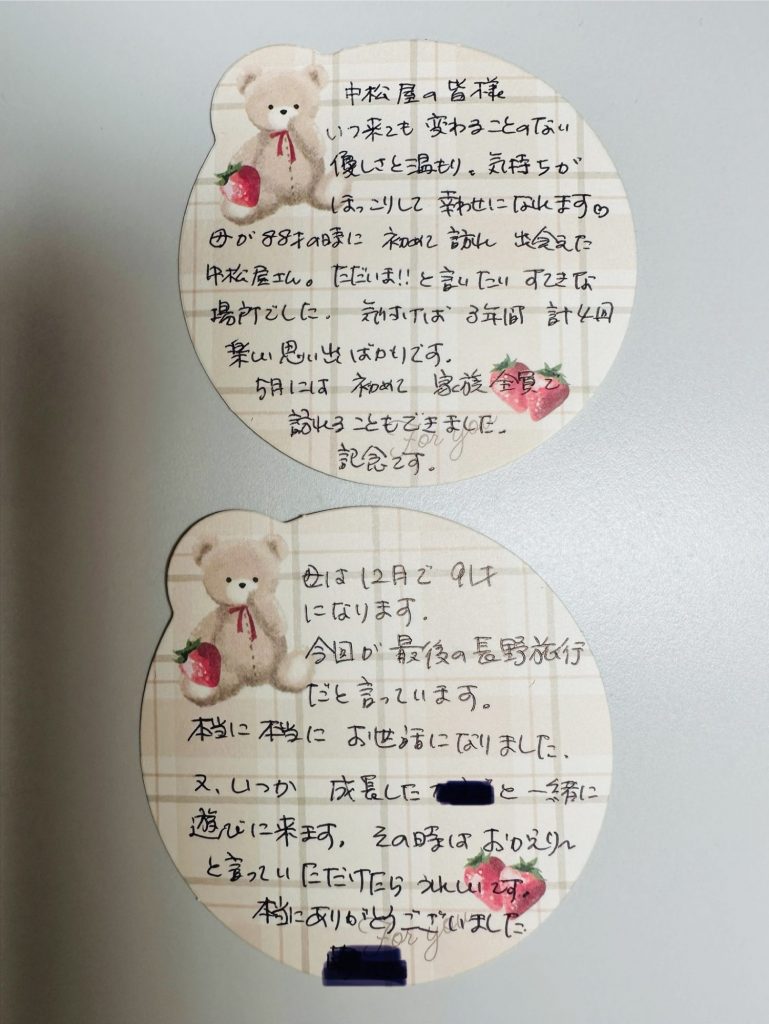 中松屋の皆様
いつ来ても 変わることのない
優しさと温もり。気持ちが
ほっこりして 幸わせになれます♡
母が88才の時に 初めて 訪れ 出会えた
中松屋さん。ただいま!!と言いたい すてきな
場所でした。 気付けば 3年間 計4回
楽しい思い出ばかりです。
5月には 初めて 家族全員で
訪れることもできました。
for you
記念です。
母は12月で 91才
になります。
今回が 最後の長野旅行
だと言っています。
本当に 本当に お世話になりました。
又、いつか 成長した と一緒に
遊びに来ます。その時は おかえりん
と言っていただけたら うれしいです。
本当にありがとうございました
for you